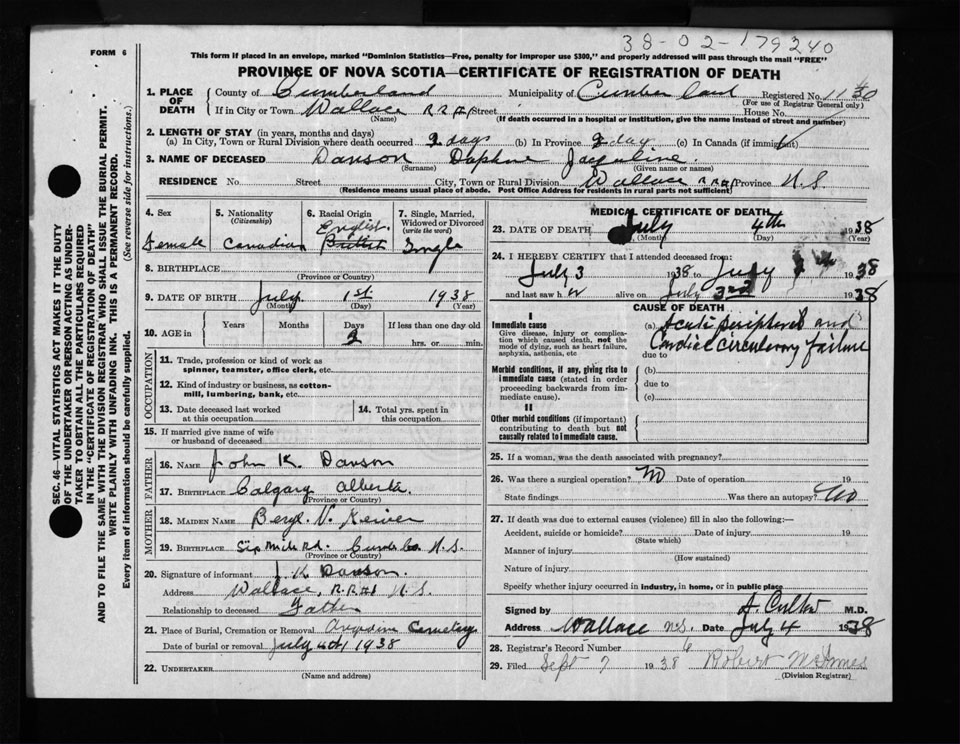 38-02-179240
FORM 6
This form if placed in an envelope, marked "Dominion Statistics—Free, penalty for improper use $300," and properly addressed will pass through the mail "FREE"
PROVINCE OF NOVA SCOTIA—CERTIFICATE OF REGISTRATION OF DEATH
1. PLACE OF DEATH County of Cumberland Municipality of Cumberland Registered No.
(For use of Registrar General only)
If in City or Town Wallace R R #1 Street House No.
(Name) (If death occurred in a hospital or institution, give the name instead of street and number)
2. LENGTH OF STAY (in years, months and days)
(a) In City, Town or Rural Division where death occurred days (b) In Province day (c) In Canada (if immigrant)
3. NAME OF DECEASED Dawson Daphne Jaqueline
(Surname) (Given name or names)
RESIDENCE No. Street City, Town or Rural Division Wallace R R #1 Province N.S.
(Residence means usual place of abode. Post Office Address for residents in rural parts not sufficient)
SEC. 46—VITAL STATISTICS ACT MAKES IT THE DUTY
OF THE UNDERTAKER OR PERSON ACTING AS UNDER-
TAKER TO OBTAIN ALL THE PARTICULARS REQUIRED
IN THE "CERTIFICATE OF REGISTRATION OF DEATH"
AND TO FILE THE SAME WITH THE DIVISION REGISTRAR WHO SHALL ISSUE THE BURIAL PERMIT.
WRITE PLAINLY WITH UNFADING INK. THIS IS A PERMANENT RECORD.
Every item of information should be carefully supplied. (See reverse side for instructions.)
4. Sex
Female
5. Nationality
(Citizenship)
Canadian
6. Racial Origin
English
British
7. Single, Married,
Widowed or Divorced
(write the word)
Single
8. BIRTHPLACE
(Province or Country)
9. DATE OF BIRTH July 1st 1938
(Month) (Day) (Year)
10. AGE in Years Months Days If less than one day old
hrs. or min.
OCCUPATION
11. Trade, profession or kind of work as
spinner, teamster, office clerk, etc.
12. Kind of industry or business, as cotton-
mill, lumbering, bank, etc.
13. Date deceased last worked
at this occupation
14. Total yrs. spent in
this occupation
15. If married give name of wife
or husband of deceased
FATHER
16. NAME John K. Dawson
17. BIRTHPLACE Calgary Alberta
(Province or Country)
MOTHER
18. MAIDEN NAME Beryl V.
19. BIRTHPLACE Rd. N.S.
(Province or Country)
20. Signature of informant J. K. Dawson.
Address Wallace, R.R #1 N.S.
Relationship to deceased Father
21. Place of Burial, Cremation or Removal Cemetery
Date of burial or removal July 1938
22. UNDERTAKER
(Name and address)
MEDICAL CERTIFICATE OF DEATH
23. DATE OF DEATH July 4th 1938
(Month) (Day) (Year)
24. I HEREBY CERTIFY that I attended deceased from:
July 3 1938 to July 1938
and last saw her alive on July 3rd 1938
CAUSE OF DEATH
I
Immediate cause
Give disease, injury or complica-
tion which caused death, not the
mode of dying, such as heart failure,
asphyxia, asthenia, etc
(a) Acute peripheral and
Cardiac circulatory failure
due to
Morbid conditions, if any, giving rise to
immediate cause (stated in order
proceeding backwards from im-
mediate cause).
(b)
due to
(c)
II
Other morbid conditions (if important)
contributing to death but not
causally related to immediate cause.
25. If a woman, was the death associated with pregnancy?
26. Was there a surgical operation? No Date of operation 19
State findings Was there an autopsy? No
27. If death was due to external causes (violence) fill in also the following:—
Accident, suicide or homicide? Date of injury 19
(State which)
Manner of injury
(How sustained)
Nature of injury
Specify whether injury occurred in industry, in home, or in public place
Signed by M.D.
Address Wallace N.S. Date July 4 1938
28. Registrar's Record Number 6
29. Filed Sept 7 1938 Robert
(Division Registrar)